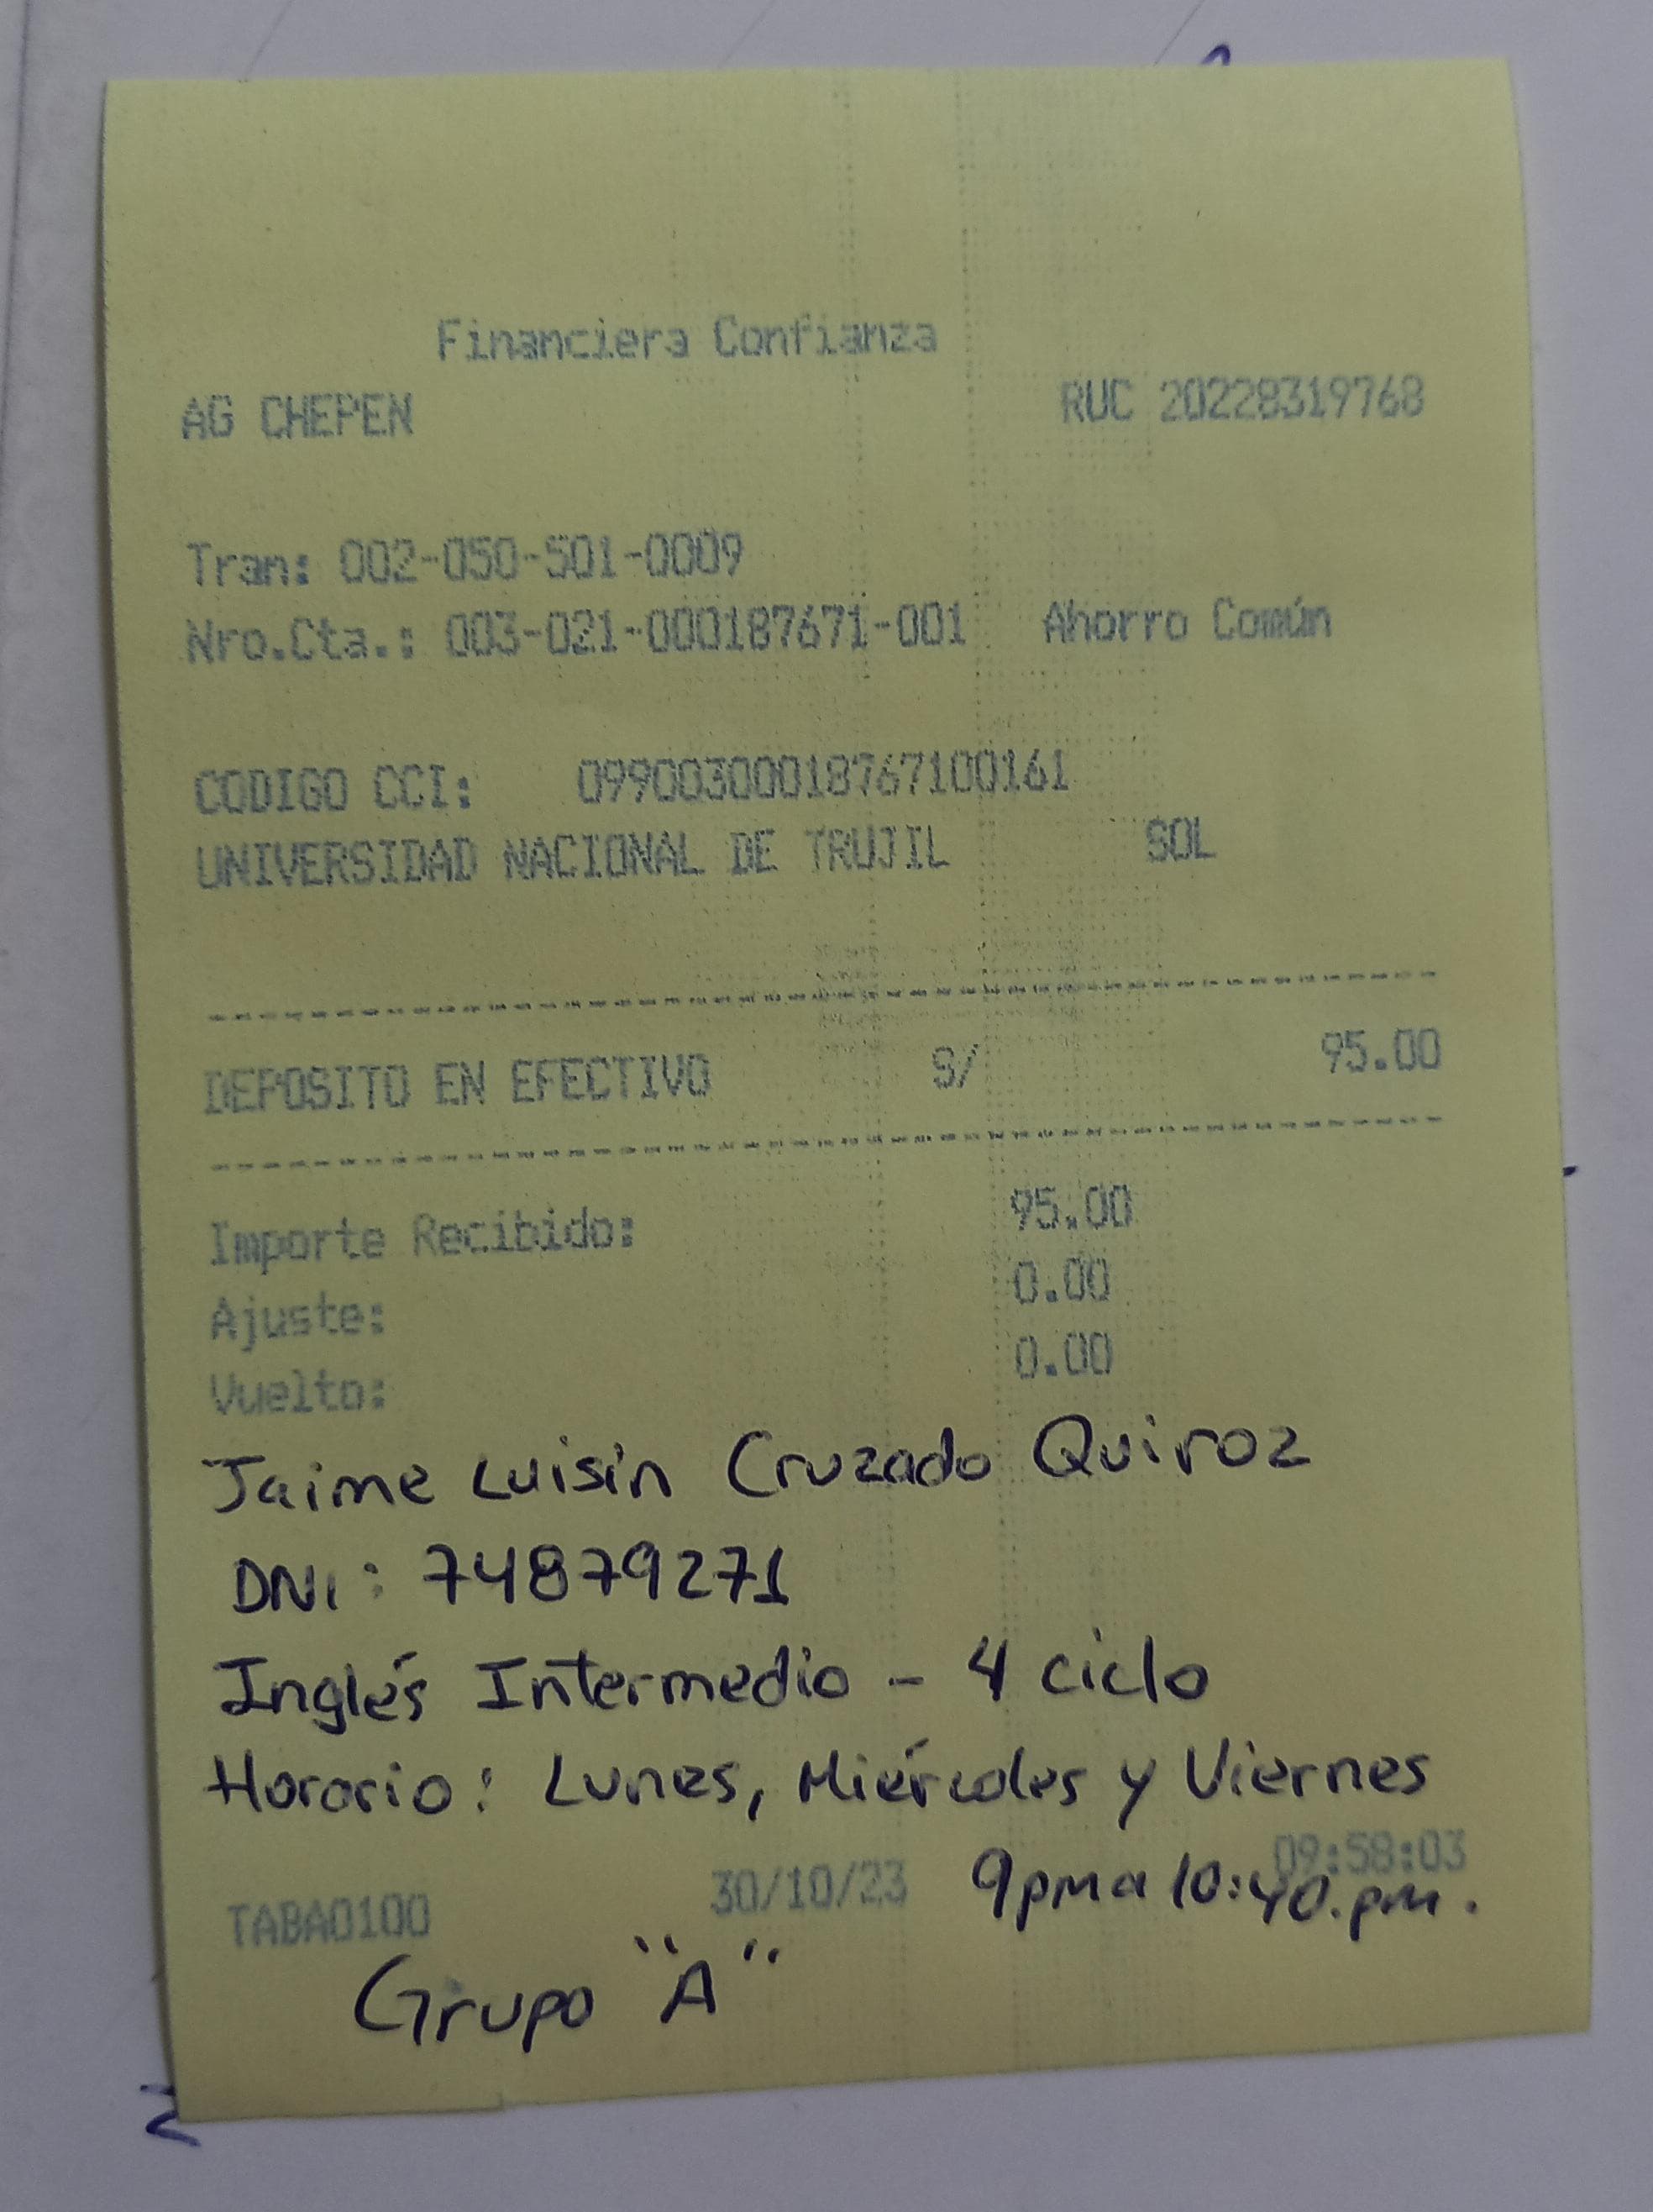 Financiera Confianza
AG CHEPEN RUC 20228319768
Tran: 002-050-501-0009
Nro.Cta.: 003-021-000187671-001 Ahorro Común
CODIGO CCI: 09900300018767100161
UNIVERSIDAD NACIONAL DE TRUJIL SOL
DEPOSITO EN EFECTIVO S/ 95.00
Importe Recibido: 95.00
Ajuste: 0.00
Vuelto: 0.00
Jaime Luisin Cruzado Quiroz
DNI: 74879271
Inglés Intermedio - 4 ciclo
Horario: Lunes, Miércoles y Viernes
09:58:03
TABA0100 30/10/23 9pm a 10:40.pm.
Grupo "A"